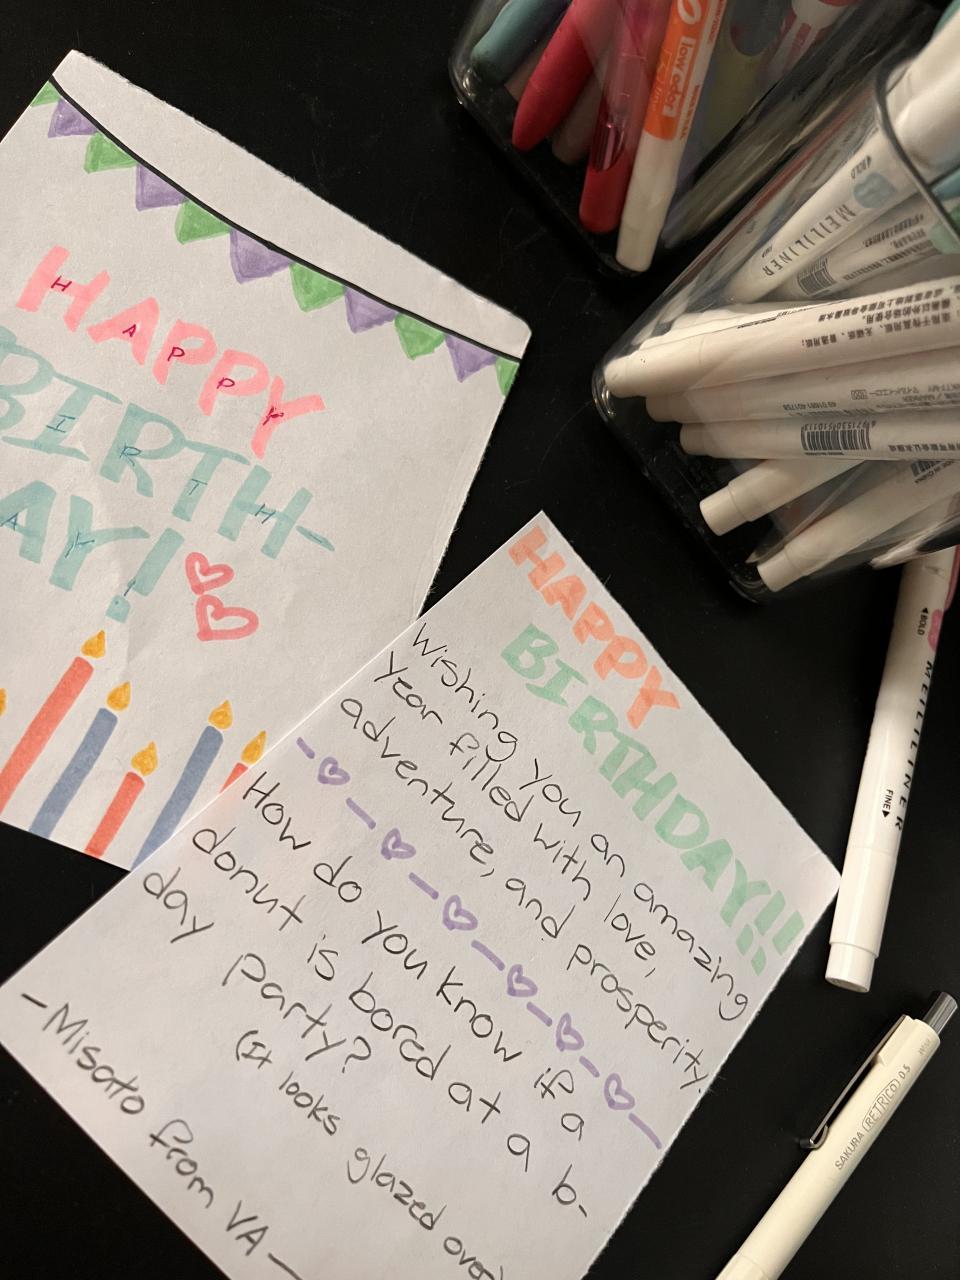 HAPPY
BIRTH-
AY!
HAPPY
BIRTHDAY!!
Wishing you an amazing
year filled with love,
adventure, and prosperity.
How do you know if a
donut is bored at a b-
day party?
(It looks glazed over)
-Misato from VA-
low odor
BOLD
MEILILINER
BOLD
MEILILINER
FINE
SAKURA RETRICO 0.5